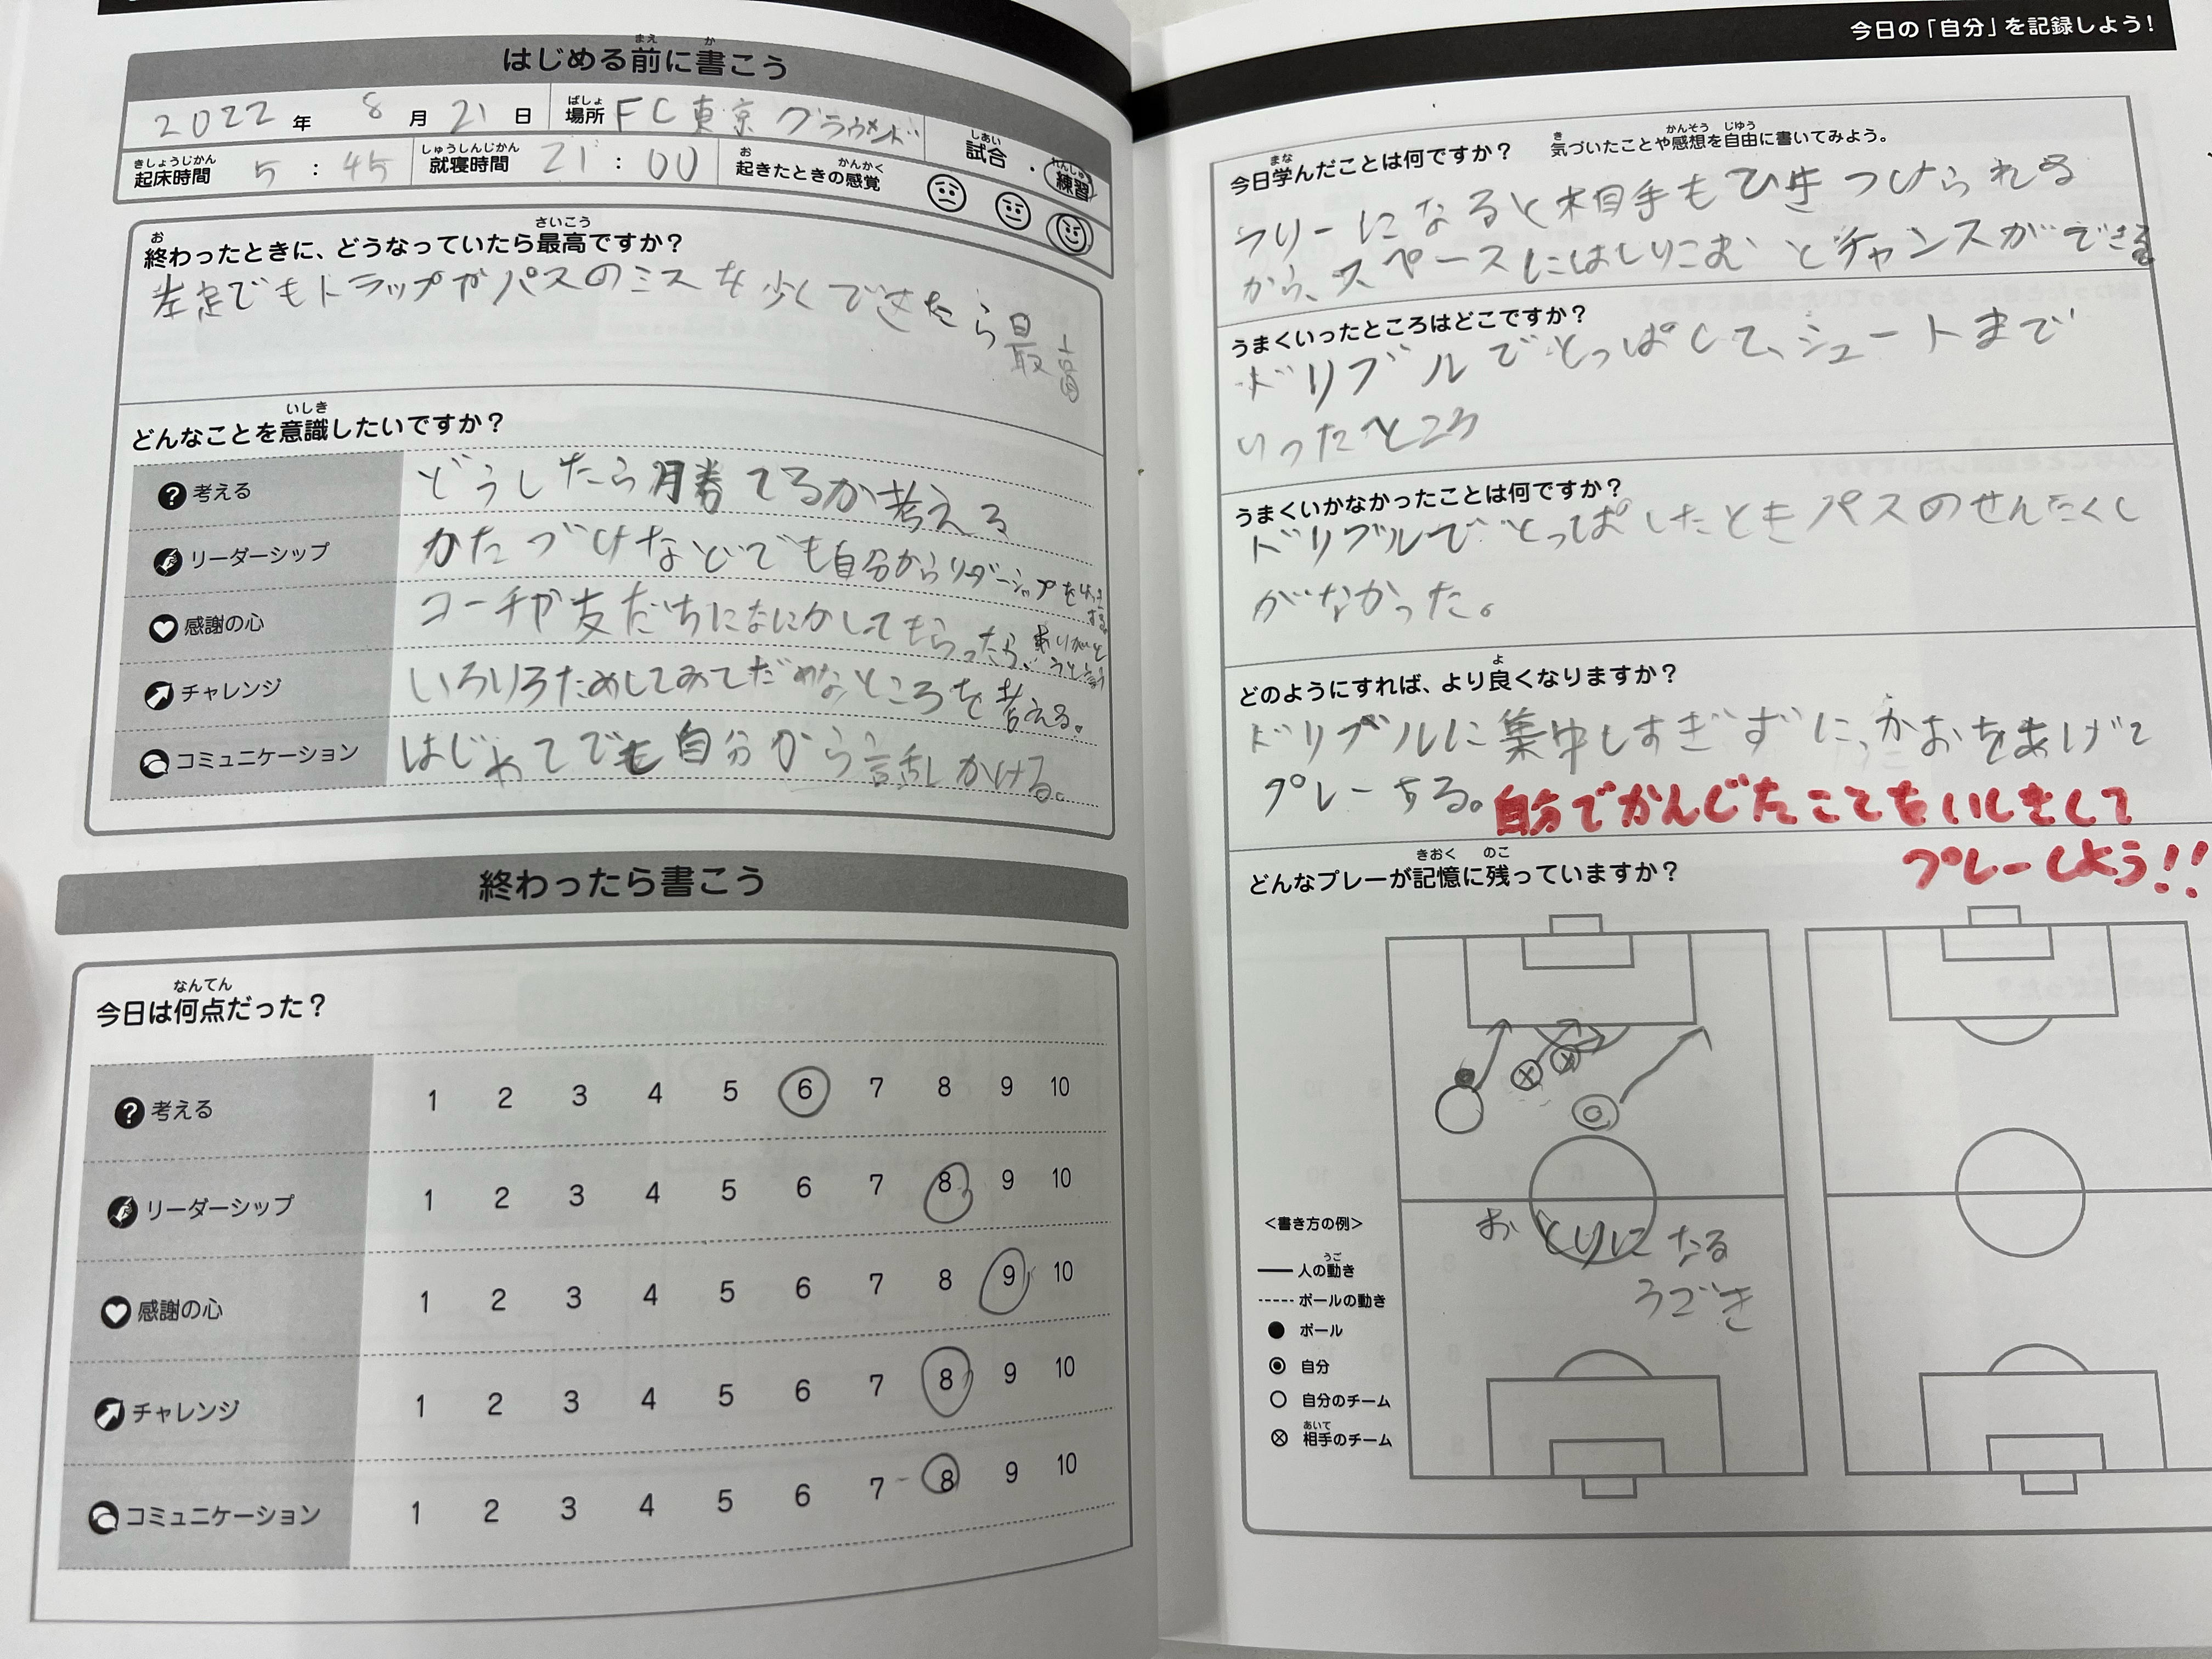 はじめる前に書こう
まえ か
2022年 8月21日 場所 FC東京グラウンド 試合・練習
ばしょ しあい れんしゅう
起床時間 5:45 就寝時間 21:00 起きたときの感覚
きしょうじかん しゅうしんじかん お かんかく
終わったときに、どうなっていたら最高ですか？
お さいこう
左足でもトラップやパスのミスを少くできたら最高
どんなことを意識したいですか？
いしき
考える どうしたら勝てるか考える
リーダーシップ かたづけなどでも自分からリーダーシップを
感謝の心 コーチや友だちになにかしてもらったら、ありがとうと言う
チャレンジ いろいろためしてみてだめなところを考える。
コミュニケーション はじめてでも自分から話しかける。
終わったら書こう
今日は何点だった？
なんてん
考える 1 2 3 4 5 6 7 8 9 10
リーダーシップ 1 2 3 4 5 6 7 8 9 10
感謝の心 1 2 3 4 5 6 7 8 9 10
チャレンジ 1 2 3 4 5 6 7 8 9 10
コミュニケーション 1 2 3 4 5 6 7 8 9 10
今日の「自分」を記録しよう！
今日学んだことは何ですか？ 気づいたことや感想を自由に書いてみよう。
まな き かんそう じゆう
フリーになると相手もひきつけられる
から、スペースにはしりこむとチャンスができる
うまくいったところはどこですか？
ドリブルでとっぱして、シュートまで
いったところ
うまくいかなかったことは何ですか？
ドリブルでとっぱしたときパスのせんたくし
がなかった。
どのようにすれば、より良くなりますか？
よ
ドリブルに集中しすぎずに、かおをあげて
プレーする。自分でかんじたことをいしきして
プレーしよう!!
どんなプレーが記憶に残っていますか？
きおく のこ
おとりになる
うごき
＜書き方の例＞
人の動き
うご
ボールの動き
ボール
自分
自分のチーム
相手のチーム
あいて